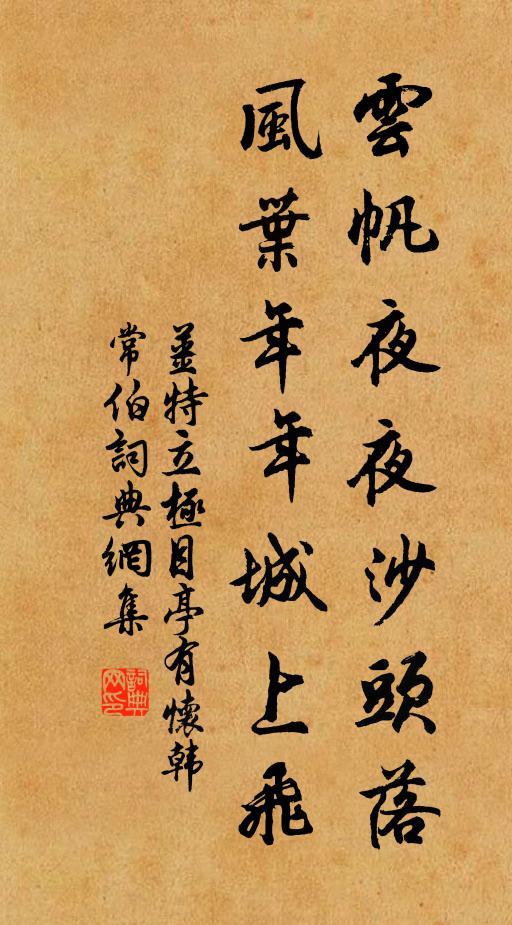 雲帆夜夜沙頭落
風葉年年城上飛
姜特立極目亭有懷韓
常伯詞典網集
詞典网印